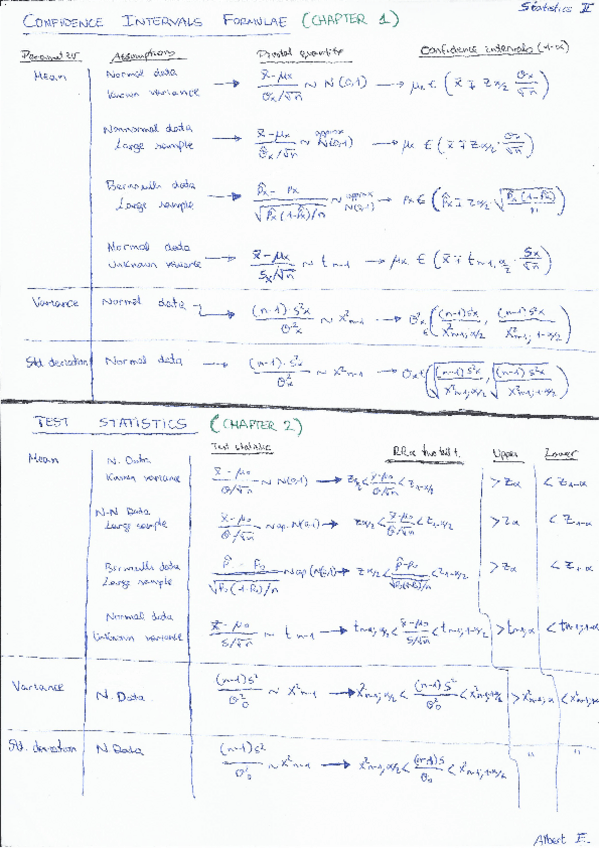 Statistics II
CONFIDENCE INTERVALS FORMULAE (CHAPTER 1)
Parameter Assumptions Pivotal quantity Confidence intervals (1-α)
Mean Normal data Known variance → (x̄ - μx)/(σx/√n) ~ N(0,1) → μx ∈ (x̄ ∓ zα/2 · σx/√n)
Nonnormal data Large sample → (x̄ - μx)/(σ̂x/√n) ~ approx N(0,1) → μx ∈ (x̄ ∓ zα/2 · σx/√n)
Bernoulli data Large sample → (p̂x - px)/√(p̂x(1-p̂x)/n) ~ approx N(0,1) → px ∈ (p̂x ∓ zα/2 √(p̂x(1-p̂x)/n))
Normal data Unknown variance → (x̄ - μx)/(sx/√n) ~ tn-1 → μx ∈ (x̄ ∓ tn-1, α/2 · sx/√n)
Variance Normal data → (n-1)·s²x/σ²x ~ χ²n-1 → σ²x ∈ ((n-1)s²x/χ²n-1;α/2, (n-1)s²x/χ²n-1;1-α/2)
Std deviation Normal data → (n-1)·s²x/σ²x ~ χ²n-1 → σx ∈ (√((n-1)s²x/χ²n-1;α/2), √((n-1)s²x/χ²n-1;1-α/2))
TEST STATISTICS (CHAPTER 2)
Test statistic RRα two tail t. Upper Lower
Mean N. Data Known variance (x̄ - μ0)/(σ/√n) ~ N(0,1) → zα/2 < (x̄-μ0)/(σ/√n) < z1-α/2 > zα < z1-α
N-N Data Large sample (x̄ - μ0)/(σ̂/√n) ~ ap. N(0,1) → zα/2 < (x̄-μ0)/(σ̂/√n) < z1-α/2 > zα < z1-α
Bernoulli data Large sample (p̂ - p0)/√(p0(1-p0)/n) ~ ap N(0,1) → zα/2 < (p̂-p0)/√(p0(1-p0)/n) < z1-α/2 > zα < z1-α
Normal data Unknown variance (x̄ - μ0)/(s/√n) ~ tn-1 → tn-1; α/2 < (x̄-μ0)/(s/√n) < tn-1; 1-α/2 > tn-1;α < tn-1,1-α
Variance N. Data (n-1)s²/σ²0 ~ χ²n-1 → χ²n-1; α/2 < (n-1)s²/σ²0 < χ²n-1;1-α/2 > χ²n-1;α < χ²n-1;1-α
Std. deviation N Data (n-1)s²/σ²0 ~ χ²n-1 → χ²n-1; α/2 < (n-1)s/σ0 < χ²n-1;1-α/2 " "
Albert E.